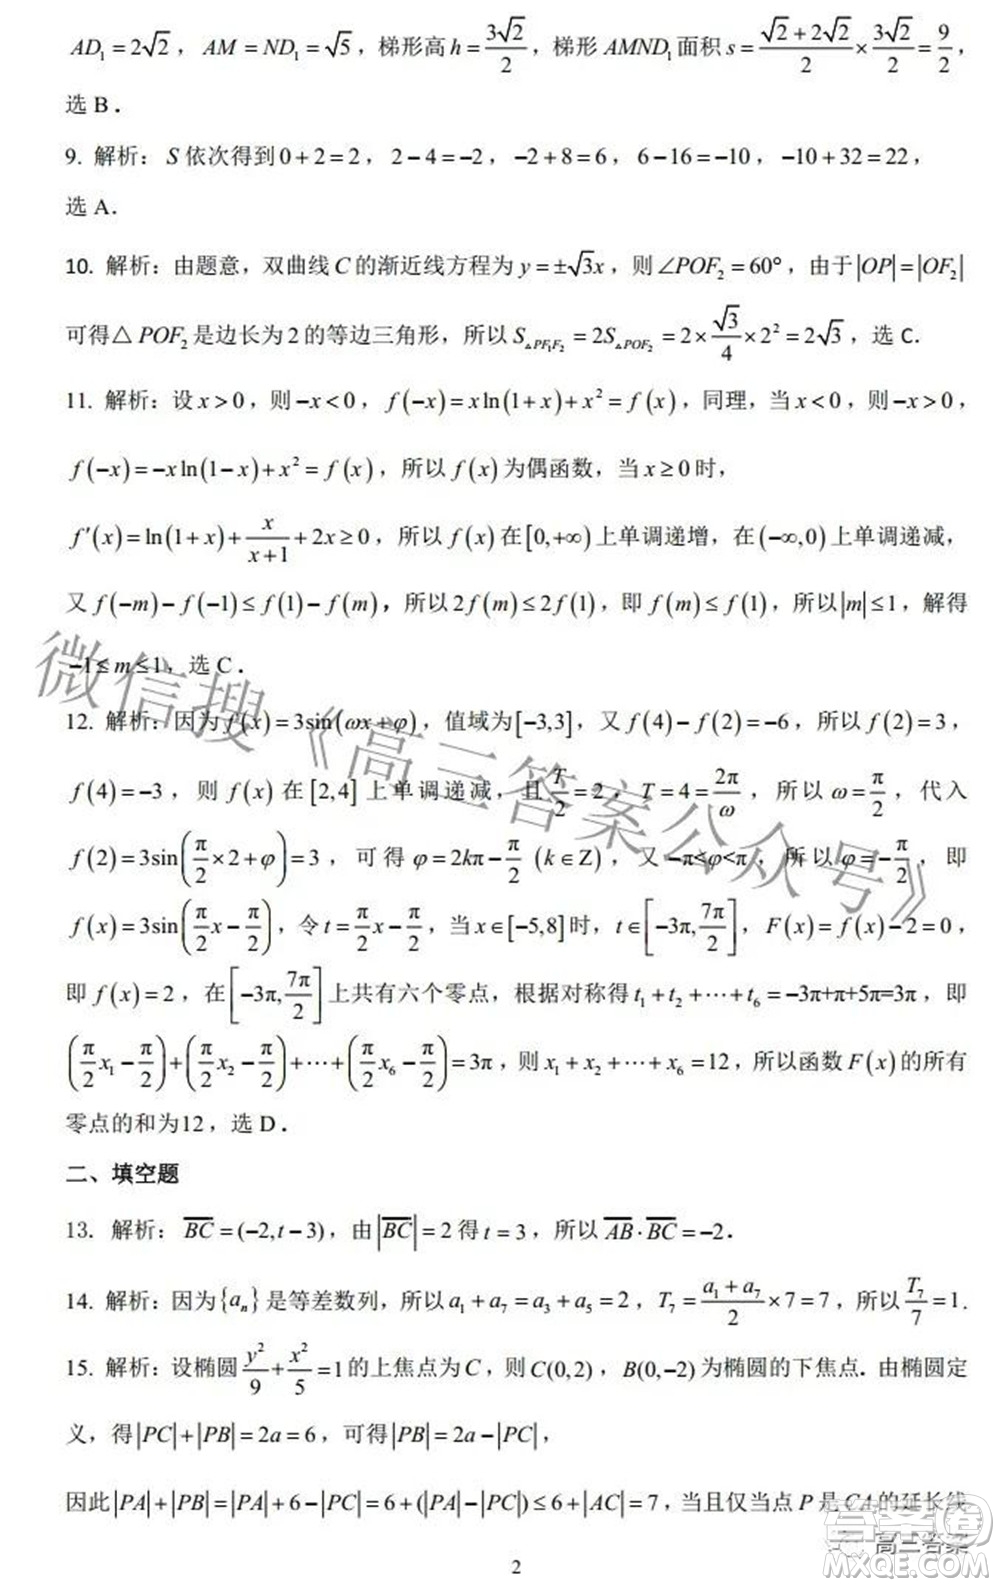 AD₁=2√2，AM=ND₁=√5，梯形高h=3√2/2，梯形AMND₁面积s=(√2+2√2)/2×3√2/2=9/2，
选 B．
9. 解析：S依次得到0+2=2，2−4=−2，−2+8=6，6−16=−10，−10+32=22，
选 A．
10. 解析：由题意，双曲线C的渐近线方程为y=±√3x，则∠POF₂=60°，由于|OP|=|OF₂|
可得△POF₂是边长为2的等边三角形，所以S△PF₁F₂=2S△POF₂=2×√3/4×2²=2√3，选 C．
11. 解析：设x>0，则−x<0，f(−x)=xln(1+x)+x²=f(x)，同理，当x<0，则−x>0，
f(−x)=−xln(1−x)+x²=f(x)，所以f(x)为偶函数，当x≥0时，
f′(x)=ln(1+x)+x/(x+1)+2x≥0，所以f(x)在[0,+∞)上单调递增，在(−∞,0)上单调递减，
又f(−m)−f(−1)≤f(1)−f(m)，所以2f(m)≤2f(1)，即f(m)≤f(1)，所以|m|≤1，解得
−1≤m≤1，选 C．
12. 解析：因为f(x)=3sin(ωx+φ)，值域为[−3,3]，又f(4)−f(2)=−6，所以f(2)=3，
f(4)=−3，则f(x)在[2,4]上单调递减，且T/2=2，T=4=2π/ω，所以ω=π/2，代入
f(2)=3sin(π/2×2+φ)=3，可得φ=2kπ−π/2 (k∈Z)，又−π<φ<π，所以φ=−π/2，即
f(x)=3sin(π/2x−π/2)，令t=π/2x−π/2，当x∈[−5,8]时，t∈[−3π,7π/2]，F(x)=f(x)−2=0，
即f(x)=2，在[−3π,7π/2]上共有六个零点，根据对称得t₁+t₂+⋯+t₆=−3π+π+5π=3π，即
(π/2x₁−π/2)+(π/2x₂−π/2)+⋯+(π/2x₆−π/2)=3π，则x₁+x₂+⋯+x₆=12，所以函数F(x)的所有
零点的和为12，选 D．
二、填空题
13. 解析：BC=(−2,t−3)，由|BC|=2得t=3，所以AB·BC=−2．
14. 解析：因为{aₙ}是等差数列，所以a₁+a₇=a₃+a₅=2，T₇=(a₁+a₇)/2×7=7，所以T₇/7=1．
15. 解析：设椭圆y²/9+x²/5=1的上焦点为C，则C(0,2)，B(0,−2)为椭圆的下焦点．由椭圆定
义，得|PC|+|PB|=2a=6，可得|PB|=2a−|PC|，
因此|PA|+|PB|=|PA|+6−|PC|=6+(|PA|−|PC|)≤6+|AC|=7，当且仅当点P是CA的延长线
2
微信搜《高三答案公众号》
高三答案
答案圈
MXQE.COM